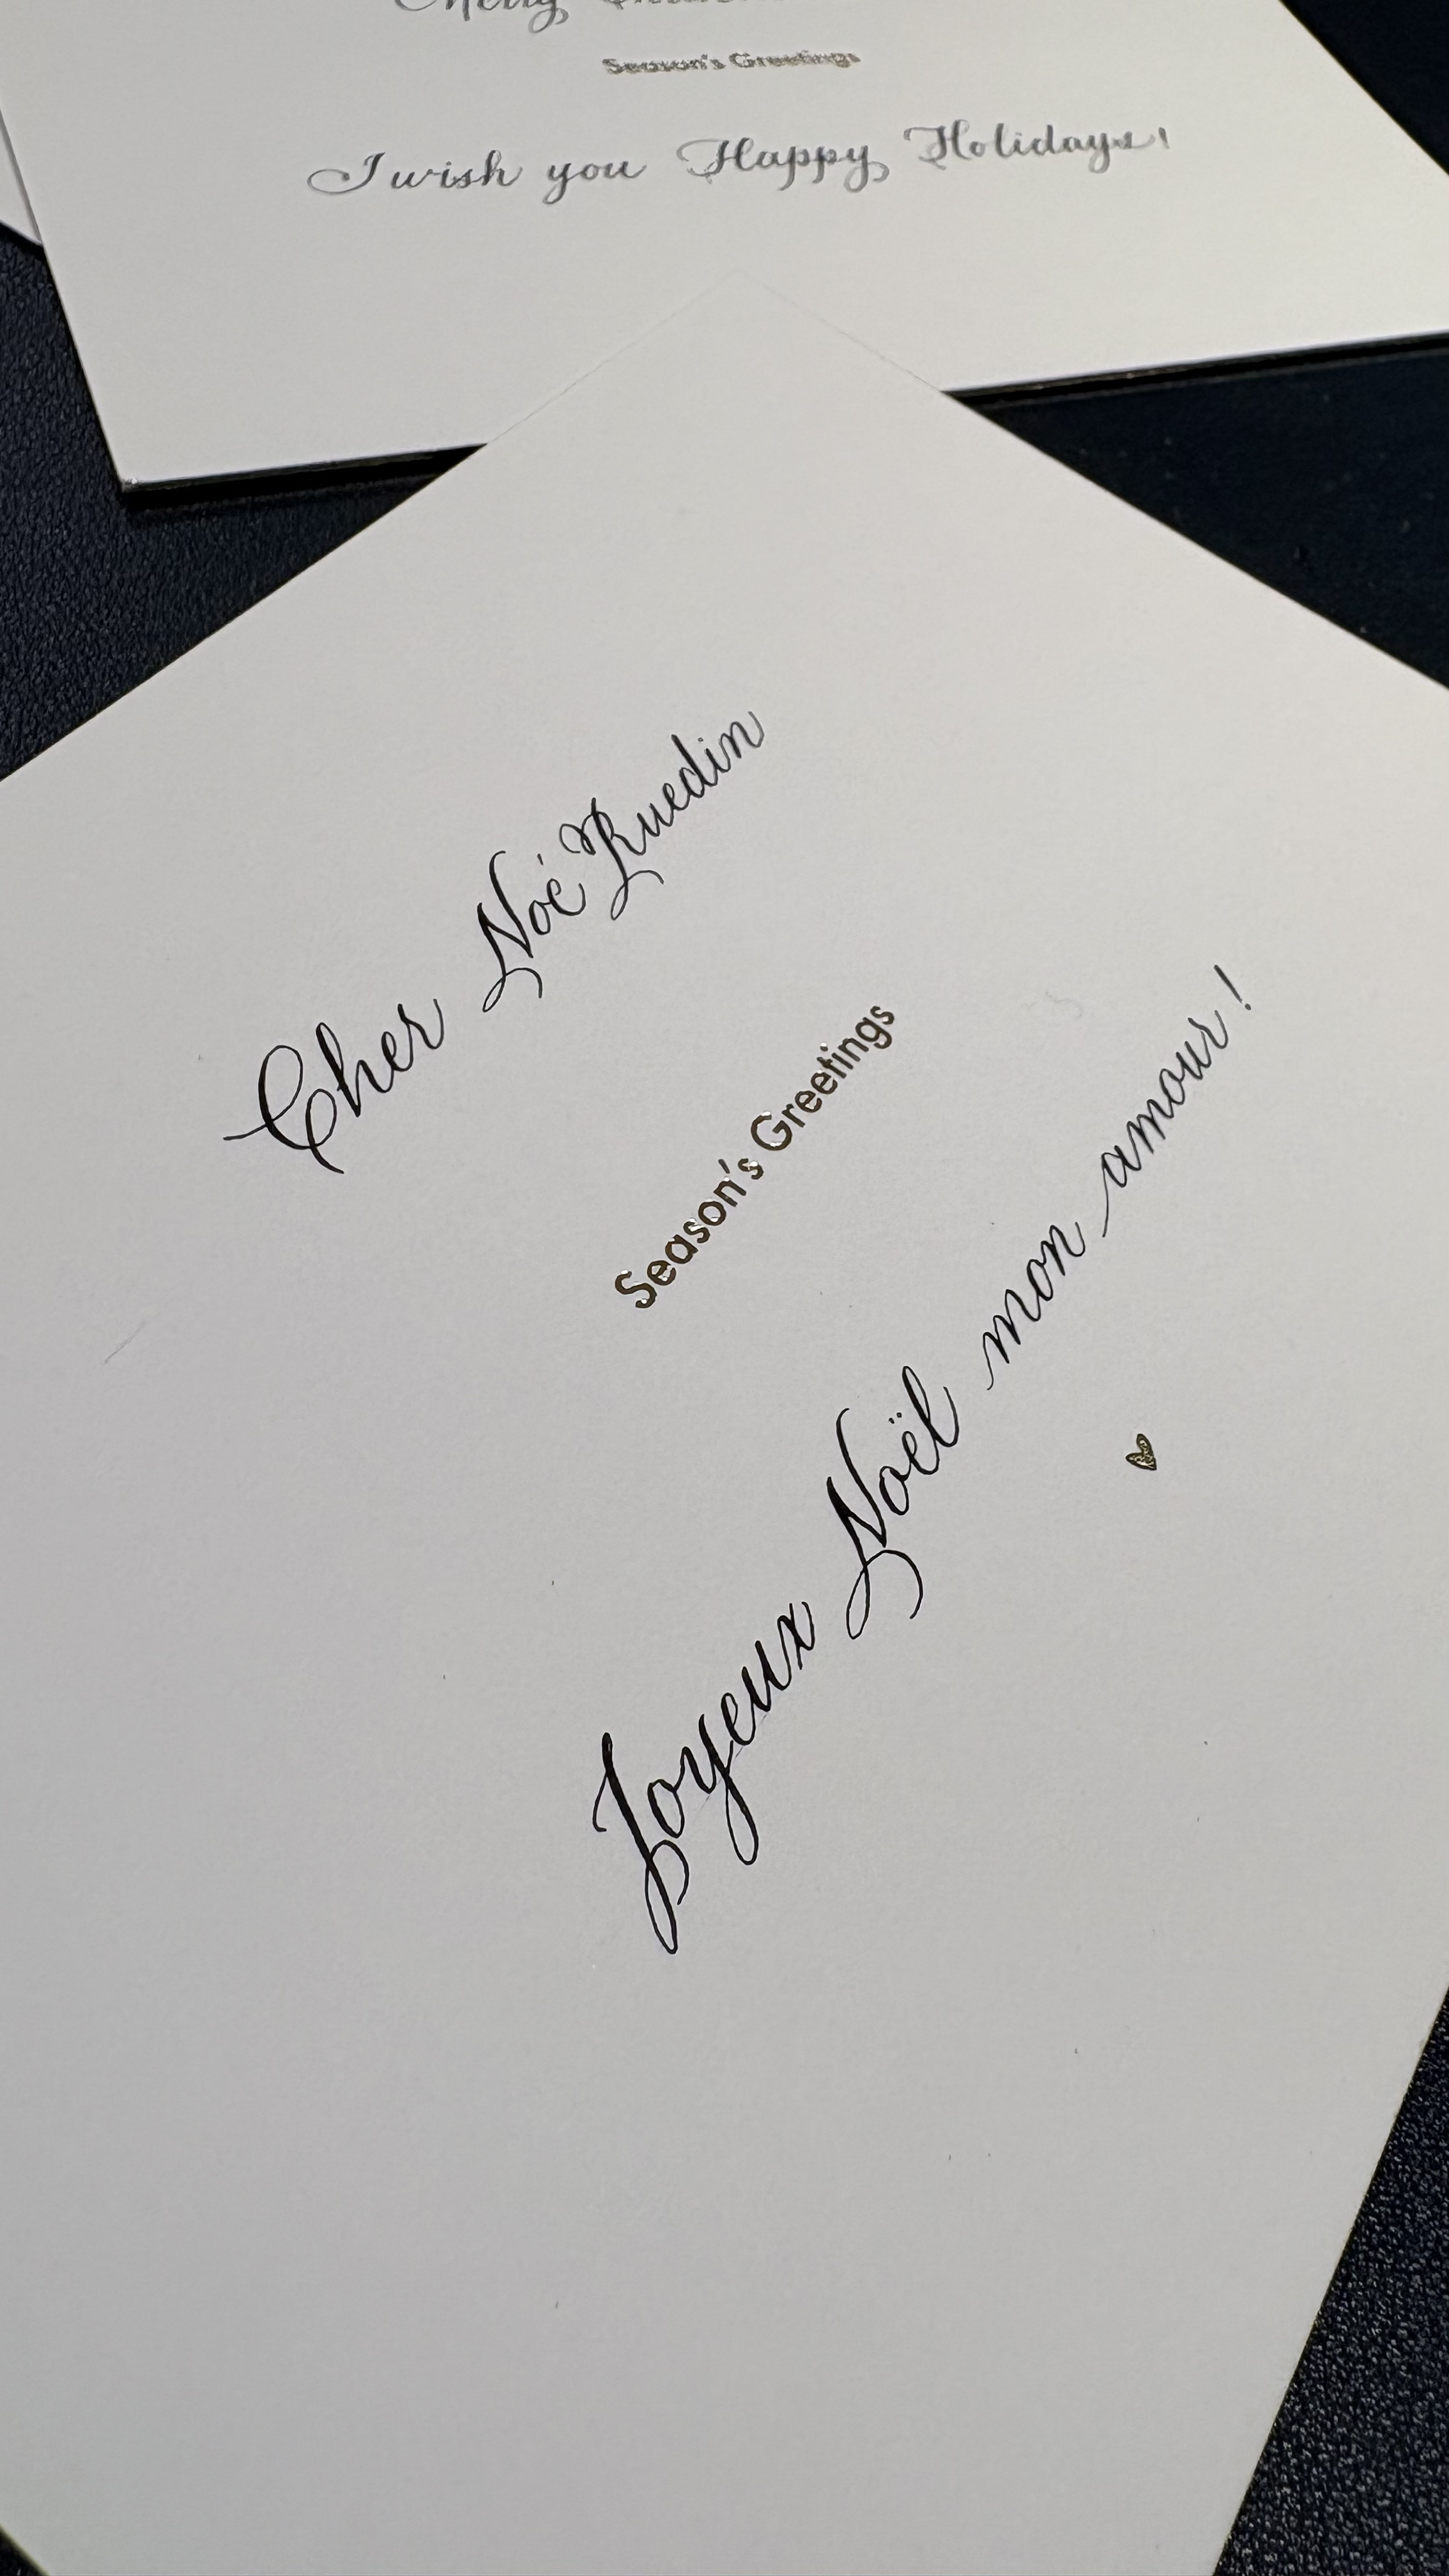 Merry
Season's Greetings
I wish you Happy Holidays!
Cher Noé Ruedin
Season's Greetings
Joyeux Noël mon amour!